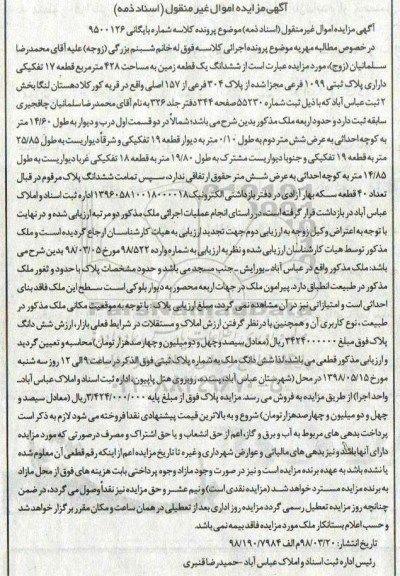 آگهی مزایده اموال غیر منقول (اسناد ذمه)
آگهی مزایده اموال غیر منقول (اسناد ذمه) موضوع پرونده کلاسه شماره بایگانی ۹۵۰۰۱۲۶
در خصوص مطالبه مهریه موضوع پرونده اجرائی کلاسه فوق له خانم شبنم بزرگی (زوجه) علیه آقای محمدرضا
سلمانیان (زوج)، مورد مزایده عبارت است از ششدانگ یک قطعه زمین به مساحت ۴۲۸ متر مربع قطعه ۱۷ تفکیکی
دارای پلاک ثبتی ۱۰۹۹ فرعی مجزا شده از پلاک ۳۰۴ فرعی از ۱۵۷ اصلی واقع در قریه کورکلا دهستان لنگا بخش
۲ ثبت عباس آباد که با ذیل ثبت شماره ۵۵۲۳۰ صفحه ۳۴۴ دفتر جلد ۳۲۶ به نام آقای محمدرضا سلمانیان چافجیری
سابقه ثبت دارد و حدود اربعه ملک مذکور بدین شرح می باشد: شمالاً در دو قسمت اول درب و دیوار به طول ۱۴/۶۰ متر
به کوچه احداثی به عرض شش متر دوم به طول ۰/۱۰ متر به دیوار قطعه ۱۹ تفکیکی و شرقاً دیواریست به طول ۲۵/۸۵
متر به قطعه ۱۹ تفکیکی و جنوبا دیوار یست مشترک به طول ۱۹/۸۰ متر به قطعه ۱۸ تفکیکی غربا دیواریست به طول
۱۴/۸۵ متر به کوچه احداثی به عرض شش متر حقوق ارتفاقی ندارد، سپس تمامت ششدانگ پلاک مرقوم در قبال
تعداد ۴۰ قطعه سکه بهار آزادی در دفتر بازداشتی الکترونیک ۱۳۹۶۰۵۸۱۰۰۱۸۰۰۰۰۱۸ اداره ثبت اسناد و املاک
عباس آباد در بازداشت قرار گرفته است، در راستای انجام عملیات اجرائی ملک مذکور دو مرتبه ارزیابی شده و در نهایت
با توجه به اعتراض وکیل زوجه به ارزیابی دوم جهت تجدید ارزیابی به هیات کارشناسان ارجاع گردیده است و ملک
مذکور توسط هیات کارشناسان ارزیابی شده و نظریه ارزیابی به شماره وارده ۹۸/۵۲۲ مورخ ۹۸/۰۳/۰۵ بدین شرح می
باشد: ملک مذکور واقع در عباس آباد - پورایش - جنب مسجد می باشد و حدود مشخصات پلاک با حدود و ثغور ملک
مذکور در طبیعت انطباق دارد. پیرامون ملک در جهات اربعه محصور به دیوار بلوکی است سطح این ملک فاقد بنای
احداثی است و امتیازاتی نیز در آن مشاهده نمی گردد، مبلغ ارزیابی پلاک: با توجه به موقعیت مکانی ملک مذکور در
طبیعت، نوع کاربری آن و همچنین با در نظر گرفتن ارزش املاک و مستغلات در شرایط فعلی بازار، ارزش شش دانگ
پلاک فوق مبلغ ۳۴۲۴۰۰۰۰۰۰ ریال (معادل سیصد و چهل و دو میلیون و چهارصد هزار تومان) محاسبه و تعیین گردید
و ارزیابی مذکور قطعی می باشد، لذا شش دانگ ملک به شماره پلاک ثبتی فوق الذکر در ساعت ۹ الی ۱۲ روز سه شنبه
مورخ ۱۳۹۸/۰۵/۱۵ در محل (شهرستان عباس آباد، روبروی هتل پاپیون، اداره ثبت اسناد و املاک عباس آباد -
واحد اجرا) از طریق مزایده به فروش می رسد. مزایده پلاک فوق از مبلغ پایه ۳/۴۲۴/۰۰۰/۰۰۰ ریال (معادل سیصد و
چهل و دو میلیون و چهارصد هزار تومان) شروع و به بالاترین قیمت پیشنهادی نقدا فروخته می شود لازم به ذکر است
پرداخت بدهی های مربوط به آب و برق و گاز، اعم از حق انشعاب و یا حق اشتراک و مصرف در صورتی که مورد مزایده
دارای آنها باشد و نیز بدهی های مالیاتی و عوارض شهرداری و غیره تا تاریخ مزایده اعم از اینکه رقم قطعی آن معلوم شده
یا نشده باشد به عهده برنده مزایده است و نیز در صورت وجود مازاد وجوه پرداختی بابت هزینه های فوق از محل مازاد
به برنده مزایده مسترد خواهد شد (مزایده نقدی است) و نیم عشر و حق مزایده نیز نقداً وصول می گردد، در ضمن
چنانچه روز مزایده تعطیل رسمی گردد مزایده روز اداری بعد از تعطیلی در همان ساعت و مکان مقرر برگزار خواهد شد
و حسب اعلام بستانکار ملک مورد مزایده فاقد بیمه نمی باشد.
تاریخ انتشار: ۹۸/۰۳/۲۰ م الف ۹۸/۱۹۰/۷۹۸۴
رئیس اداره ثبت اسناد و املاک عباس آباد - حمیدرضا قنبری